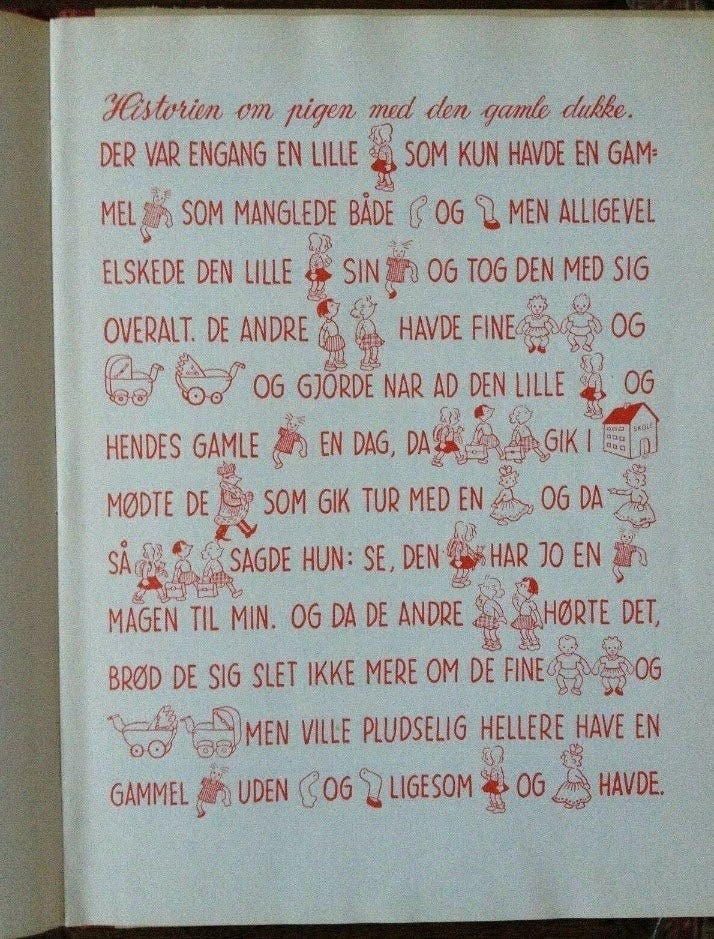 Historien om pigen med den gamle dukke.
DER VAR ENGANG EN LILLE SOM KUN HAVDE EN GAM=
MEL SOM MANGLEDE BÅDE OG MEN ALLIGEVEL
ELSKEDE DEN LILLE SIN OG TOG DEN MED SIG
OVERALT. DE ANDRE HAVDE FINE OG
OG GJORDE NAR AD DEN LILLE OG
HENDES GAMLE EN DAG, DA GIK I SKOLE
MØDTE DE SOM GIK TUR MED EN OG DA
SÅ SAGDE HUN: SE, DEN HAR JO EN
MAGEN TIL MIN. OG DA DE ANDRE HØRTE DET,
BRØD DE SIG SLET IKKE MERE OM DE FINE OG
MEN VILLE PLUDSELIG HELLERE HAVE EN
GAMMEL UDEN OG LIGESOM OG HAVDE.